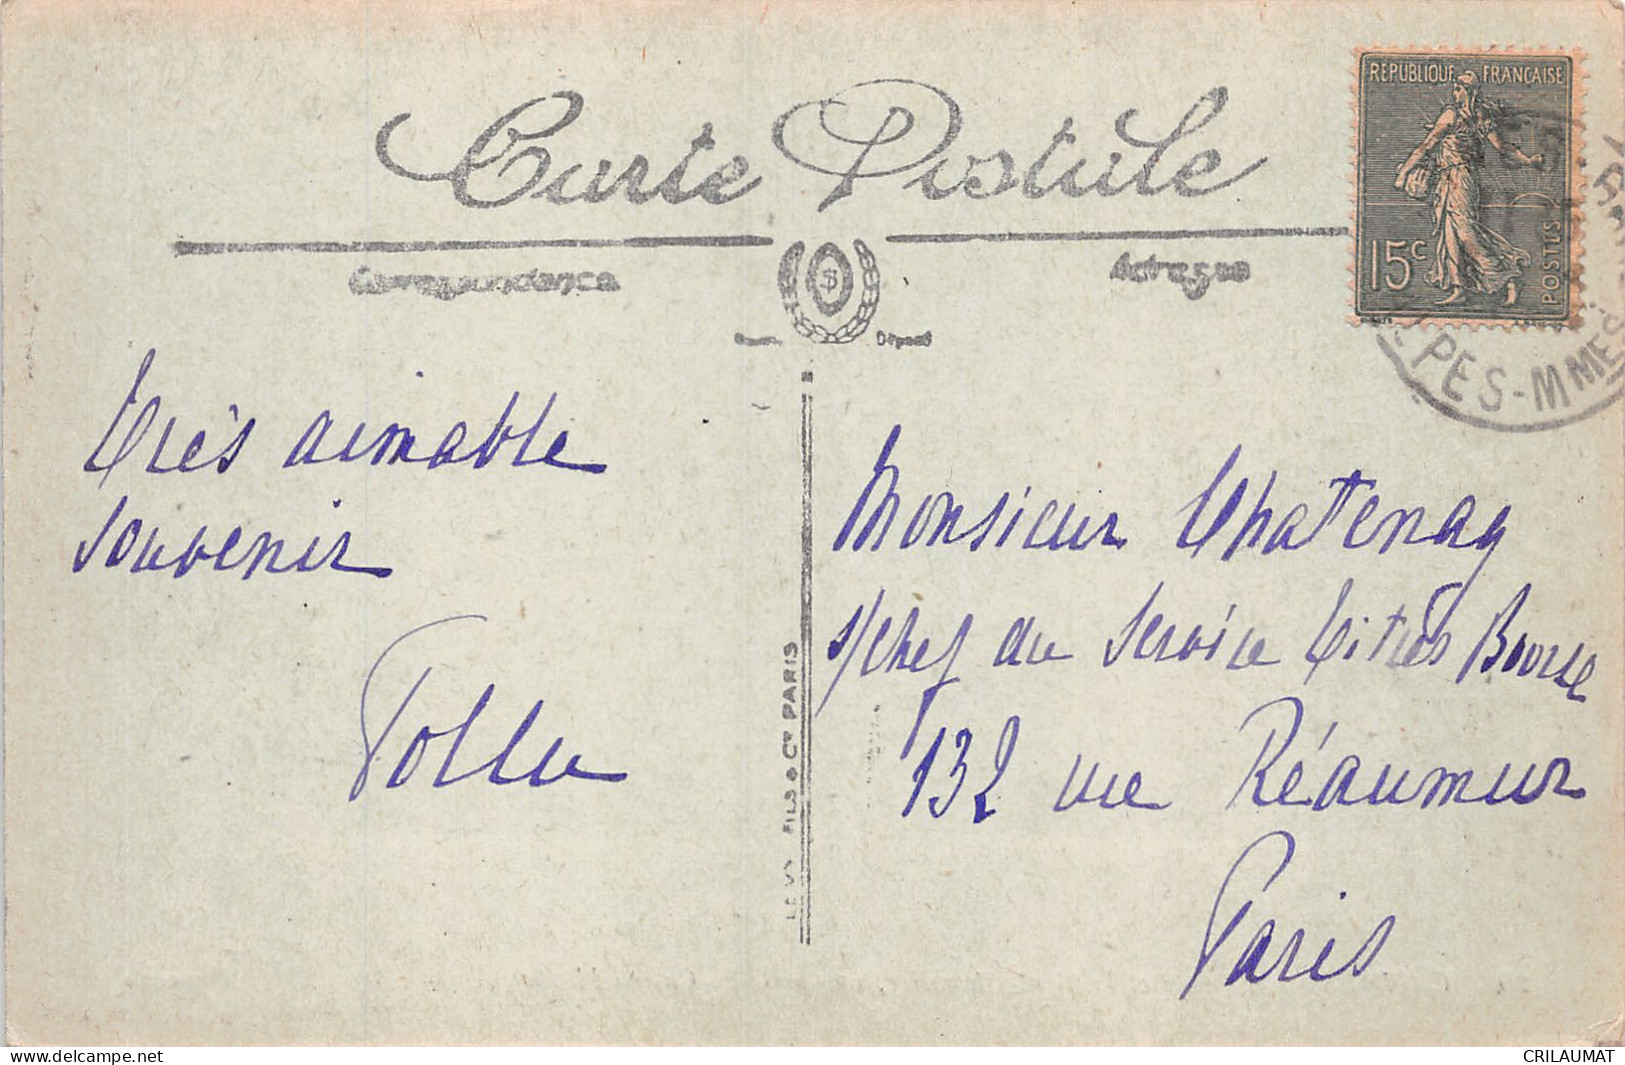 Carte Postale
Correspondance
Adresse
Déposé
RÉPUBLIQUE FRANÇAISE
15c
POSTES
PES-MMES
Très aimable
souvenir
Monsieur Chatenay
s/chef du Service Titres Bourse
132 rue Réaumur
Paris
FILS & Cie PARIS
www.delcampe.net
CRILAUMAT